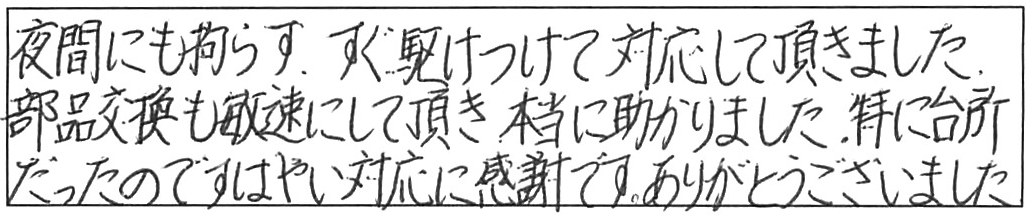 夜間にも拘らず、すぐ駆けつけて対応して頂きました。
部品交換も敏速にして頂き本当に助かりました。特に台所
だったのですはやい対応に感謝です。ありがとうございました